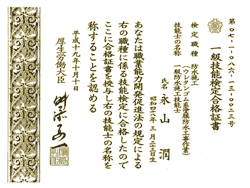 第〇七-一-〇八六-一三-〇〇二三号
一級技能検定合格証書
検定職種　防水施工
（ウレタンゴム系塗膜防水工事作業）
技能士の名称　一級防水施工技能士
氏名　永山　潤
昭和四八年三月二十五日生
あなたは職業能力開発促進法の規定による
右の職種に係る技能検定に合格したので
ここに合格証書を授与し右の技能士の名称を
称することを認める
平成十九年十月十日
厚生労働大臣